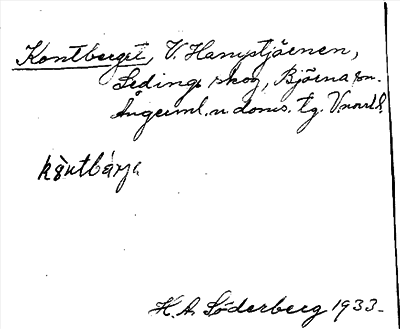 Kontberget, V. Hamptjärnen,
Sedings skog, Björna sn.
Ångerml. n. doms. tg. V.norrl.
kòntbárjə
H. A. Söderberg 1933.